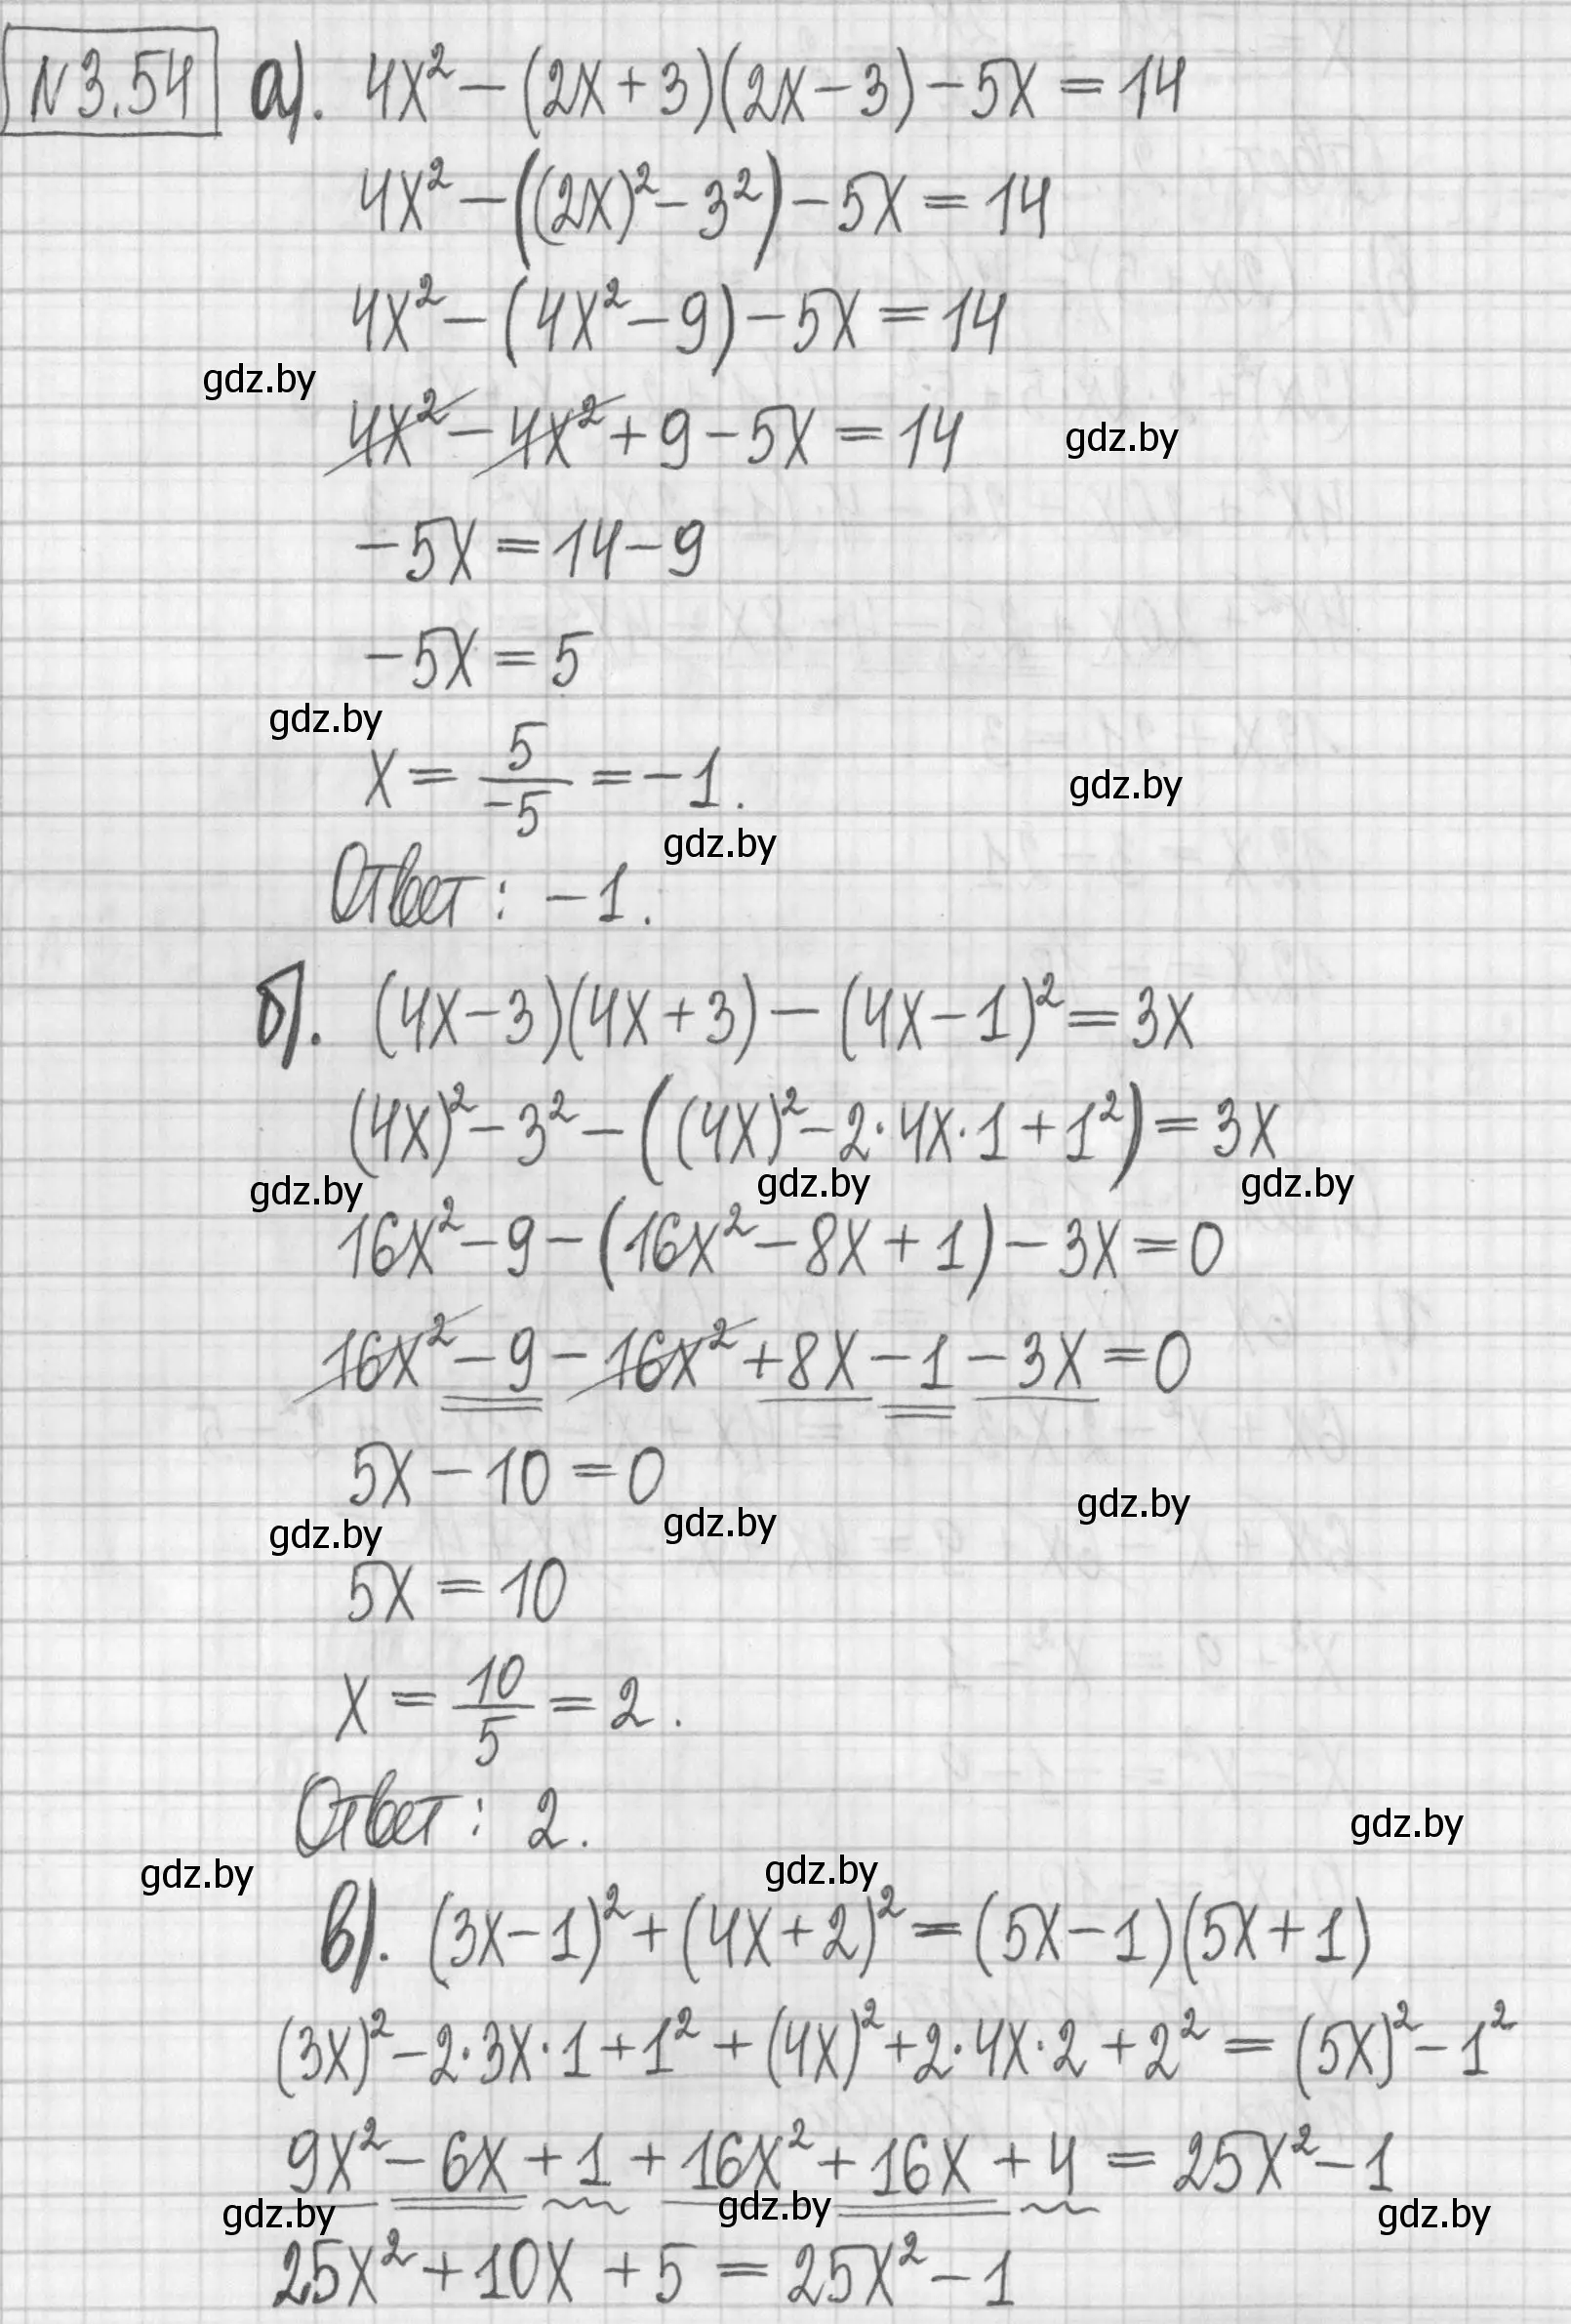 №3.54 а). 4x² − (2x + 3)(2x − 3) − 5x = 14
4x² − ((2x)² − 3²) − 5x = 14
4x² − (4x² − 9) − 5x = 14
gdz.by
4x² − 4x² + 9 − 5x = 14
gdz.by
−5x = 14 − 9
−5x = 5
gdz.by
x = 5/−5 = −1.
gdz.by
gdz.by
Ответ: −1.
б). (4x − 3)(4x + 3) − (4x − 1)² = 3x
(4x)² − 3² − ((4x)² − 2·4x·1 + 1²) = 3x
gdz.by gdz.by gdz.by
16x² − 9 − (16x² − 8x + 1) − 3x = 0
16x² − 9 − 16x² + 8x − 1 − 3x = 0
5x − 10 = 0
gdz.by gdz.by gdz.by
5x = 10
x = 10/5 = 2.
Ответ: 2.
gdz.by
gdz.by gdz.by
в). (3x − 1)² + (4x + 2)² = (5x − 1)(5x + 1)
(3x)² − 2·3x·1 + 1² + (4x)² + 2·4x·2 + 2² = (5x)² − 1²
9x² − 6x + 1 + 16x² + 16x + 4 = 25x² − 1
gdz.by gdz.by gdz.by
25x² + 10x + 5 = 25x² − 1